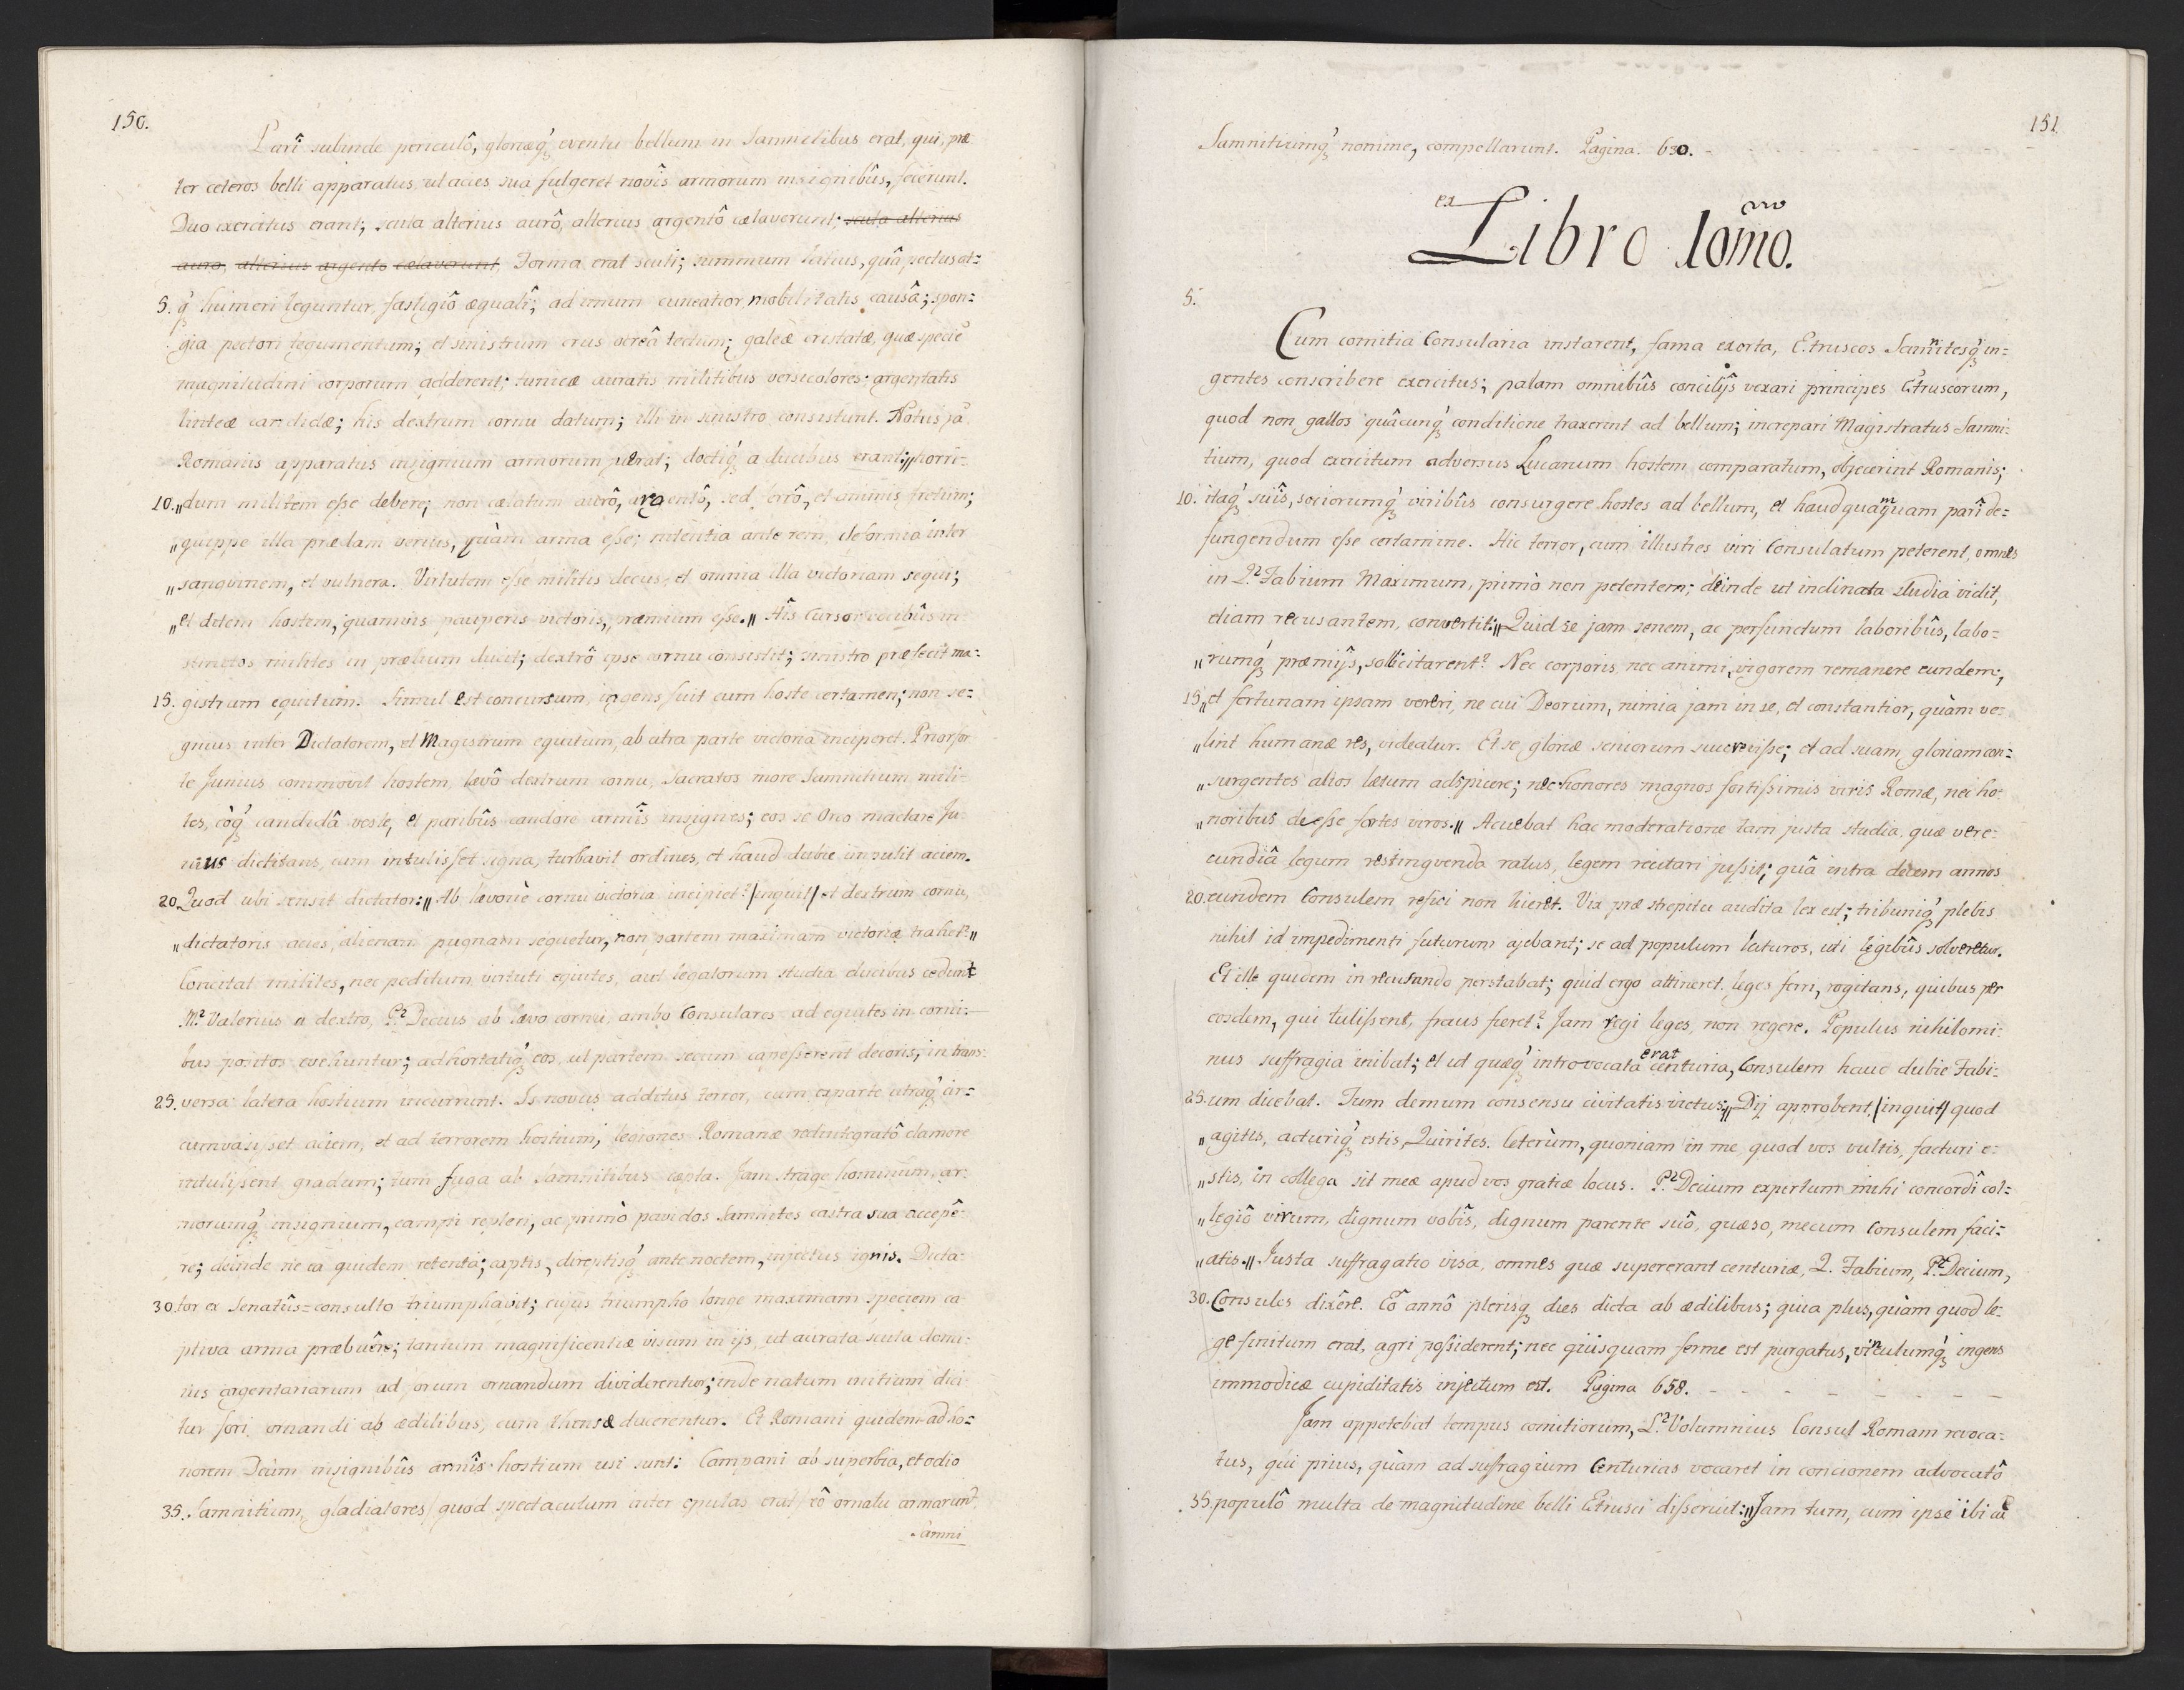 150.
Parî subinde periculô, gloriæq́ꝫ eventu bellum in Samnitibus erat, qui, præ
ter ceteros belli apparatus, ut acies sua fulgeret novîs armorum insignibûs, fecerunt.
Duo exercitus erant; scuta alterius aurô, alterius argentô cælaverunt; scuta alterius
auro, alterius argento cælaverunt, Forma erat scuti; summum latius, quâ pectus at=
5. q́ꝫ humeri teguntur, fastigiô æqualî; ad imum cuneatior mobilitatis causâ; spon=
gia pectori tegumentum; et sinistrum crus ocreâ tectum; galeæ cristatæ, quæ specie
magnitudini corporum adderent; tunicæ auratis militibus versicolores; argentatis
linteæ candidæ; his dextrum cornu datum; illi in sinistro consistunt. Notus ja
Romanis apparatus insignium armorum fuerat; doctiq́ꝫ a ducibus erant:〃horri-
10. „dum militem esse debere; non cælatum aurô, argentô, sed ferrô, et animis fretum;
„quippe illa prædam verius, quàm arma esse; nitentia ante rem, deformia inter
„sanguinem, et vulnera. Virtutem esse militis decus, et omnia illa victoriam sequi;
„et ditem hostem, quamvis pauperis victoris, præmium esse.〃 Hîs Cursor vocibûs in-
stinctos milites in prælium ducit; dextrô ipse cornu consistit; sinistro præfecit ma=
15. gistrum equitum. Simul est concursum, ingens fuit cum hoste certamen; non se=
gnius inter Dictatorem, et Magistrum equitum, ab utra parte victoria inciperet. Prior for
te Junius commovit hostem, lævô dextrum cornu, Sacratos more Samnitium mili-
tes, eòq́ꝫ candidâ veste, et paribûs candore armîs insignes; eos se Orco mactare Ju-
nius dictitans, cum intulisset signa, turbavit ordines, et haud dubie impulit aciem.
20. Quod ubi sensit dictator:〃Ab lævonè cornu victoria incipiet? /inquit/ et dextrum cornu,
„dictatoris acies, alienam pugnam sequetur, non partem maximam victoriæ trahet?〃
Concitat milites, nec peditum virtuti equites, aut legatorum studia ducibus cedunt
M.² Valerius a dextro, P.² Decius ab lævo cornu, ambo Consulares ad equites in corni-
bus positos evehuntur; adhortatiq́ꝫ eos, ut partem secum capesserent decoris, in trans-
25. versa latera hostium incurrunt. Is novus additus terror, cum ex parte utraq́ꝫ cir=
cumvasisset aciem, et ad terrorem hostium, legiones Romanæ redintegratô clamore
intulissent gradum; tum fuga ab Samnitibus cæpta. Jam strage hominum, ar-
morumq́ꝫ insignium, campi repleri, ac primò pavidos Samnites castra sua accepê-
re; deinde ne ea quidem retenta; captis, direptisq́ꝫ ante noctem, injectus ignis. Dicta-
30. tor ex Senatûs=consulto triumphavit; cujus triumpho longe maximam speciem ca
ptiva arma præbuêre; tantum magnificentiæ visum in ijs, ut aurata scuta domi-
nis argentariarum ad forum ornandum dividerentur; inde natum initium dici-
tur fori ornandi ab ædilibus, cum thensæ ducerentur. Et Romani quidem ad ho=
norem Deûm insignibûs armîs hostium usi sunt: Campani ab superbia, et odio
35. Samnitium, gladiatores /quod spectaculum inter epulas erat/ eô ornatu armarunt,
Samni
151
Samnitiumq́ꝫ nomine, compellarunt. Pagina. 630. -
ex Libro 10mo.
5.
Cum comitia Consularia instarent, fama exorta, Etruscos Samnitesq́ꝫ in=
gentes conscribere exercitus; palam omnibûs concilijs vexari principes Etruscorum,
quod non gallos quâcunq́ꝫ conditione traxerint ad bellum; increpari Magistratus Samni-
tium, quod exercitum adversus Lucanum hostem comparatum, objecerint Romanis;
10. itaq́ꝫ suîs, sociorumq́ꝫ viribûs consurgere hostes ad bellum, et haudquamquam parî de=
fungendum esse certamine. Hic terror, cum illustres viri Consulatum peterent, omnes
in Q.² Fabium Maximum, primò non petentem; deinde ut inclinata studia vidit,
etiam recusantem, convertit:〃Quid se jam senem, ac perfunctum laboribûs, labo=
„rumq́ꝫ præmijs, sollicitarent? Nec corporis, nec animi, vigorem remanere eundem;
15. „et fortunam ipsam vereri, ne cui Deorum, nimia jam in se, et constantior, quàm ve-
„lint humanæ res, videatur. Et se gloriæ seniorum succrevisse; et ad suam gloriam con=
„surgentes alios lætum adspicere; nec honores magnos fortissimis viris Romæ, nec ho-
„noribus deesse fortes viros.〃 Acuebat hac moderatione tam justa studia, quæ vere-
cundiâ legum restingvenda ratus, legem recitari jussit; quâ intra decem annos
20. eundem Consulem refici non liceret. Vix præ strepitu audita lex est; tribuniq́ꝫ plebis
nihil id impedimenti futurum ajebant; se ad populum laturos, uti legibûs solveretur.
Et ille quidem in recusando perstabat; quid ergo attineret leges ferri, rogitans, quibus per
eosdem, qui tulissent, fraus fieret? Jam regi leges, non regere. Populus nihilomi-
nus suffragia inibat; et ut quæq́ꝫ introvocata erat centuria, Consulem haud dubie Fabi-
25. um dicebat. Tum demum consensu civitatis victus:〃Dij approbent, /inquit/ quod
„agitis, acturiq́ꝫ estis, Quirites. Ceterùm, quoniam in me, quod vos vultis, facturi e-
„stis, in collega sit meæ apud vos gratiæ locus. P.² Decium expertum mihi concordî col=
„legiô virum, dignum vobîs, dignum parente suô, quæso, mecum Consulem faci=
„atis.〃 Justa suffragatio visa, omnes quæ supererant centuriæ, Q. Fabium, P.² Decium,
30. Consules dixêre. Eô annô plerisqꝫ dies dicta ab ædilibus; quia plus, quàm quod le-
ge finitum erat, agri possiderent; nec quisquam ferme est purgatus, vinculumq́ꝫ ingens
immodicæ cupiditatis injectum est. Pagina 658. - - - - - - -
Jam appetebat tempus comitiorum, L.² Volumnius Consul Romam revoca-
tus, qui prius, quàm ad suffragium Centurias vocaret in concionem advocatô
35. populô multa de magnitudine belli Etrusci disseruit:〃Jam tum, cum ipse ibi cũ